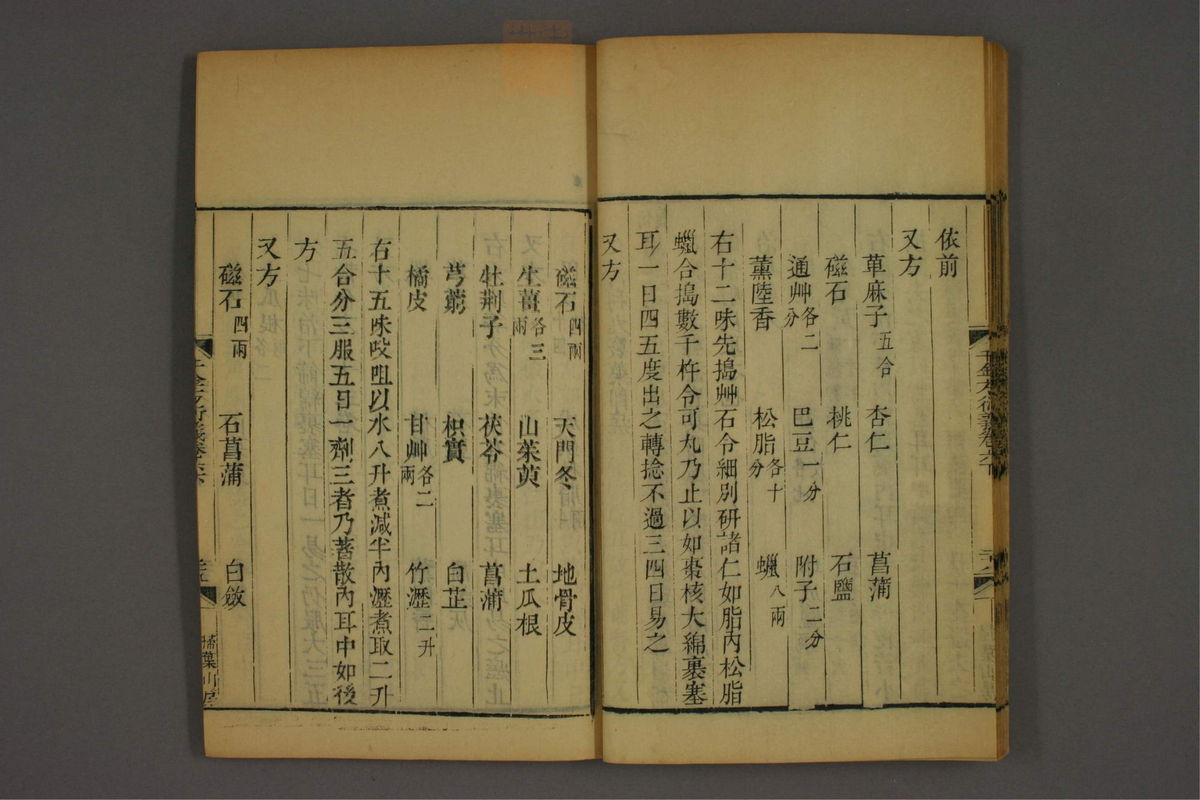 依前
又方
萆麻子五合 杏仁 菖蒲
磁石 桃仁 石鹽
通艸各二分 巴豆一分 附子二分
薰陸香 松脂各十分 蠟八兩
右十二味先搗艸石令細別研諸仁如脂內松脂
蠟合搗數千杵令可丸乃止以如棗核大綿裹塞
耳一日四五度出之轉捻不過三四日易之
又方
磁石四兩 天門冬 地骨皮
生薑各三兩 山茱萸 土瓜根
牡荆子 茯苓 菖蒲
芎藭 枳實 白芷
橘皮 甘艸各二兩 竹瀝二升
右十五味㕮咀以水八升煮減半內瀝煮取二升
五合分三服五日一劑三者乃著散內耳中如後
方
又方
磁石四兩 石菖蒲 白斂
千金方衍義卷六
掃葉山房